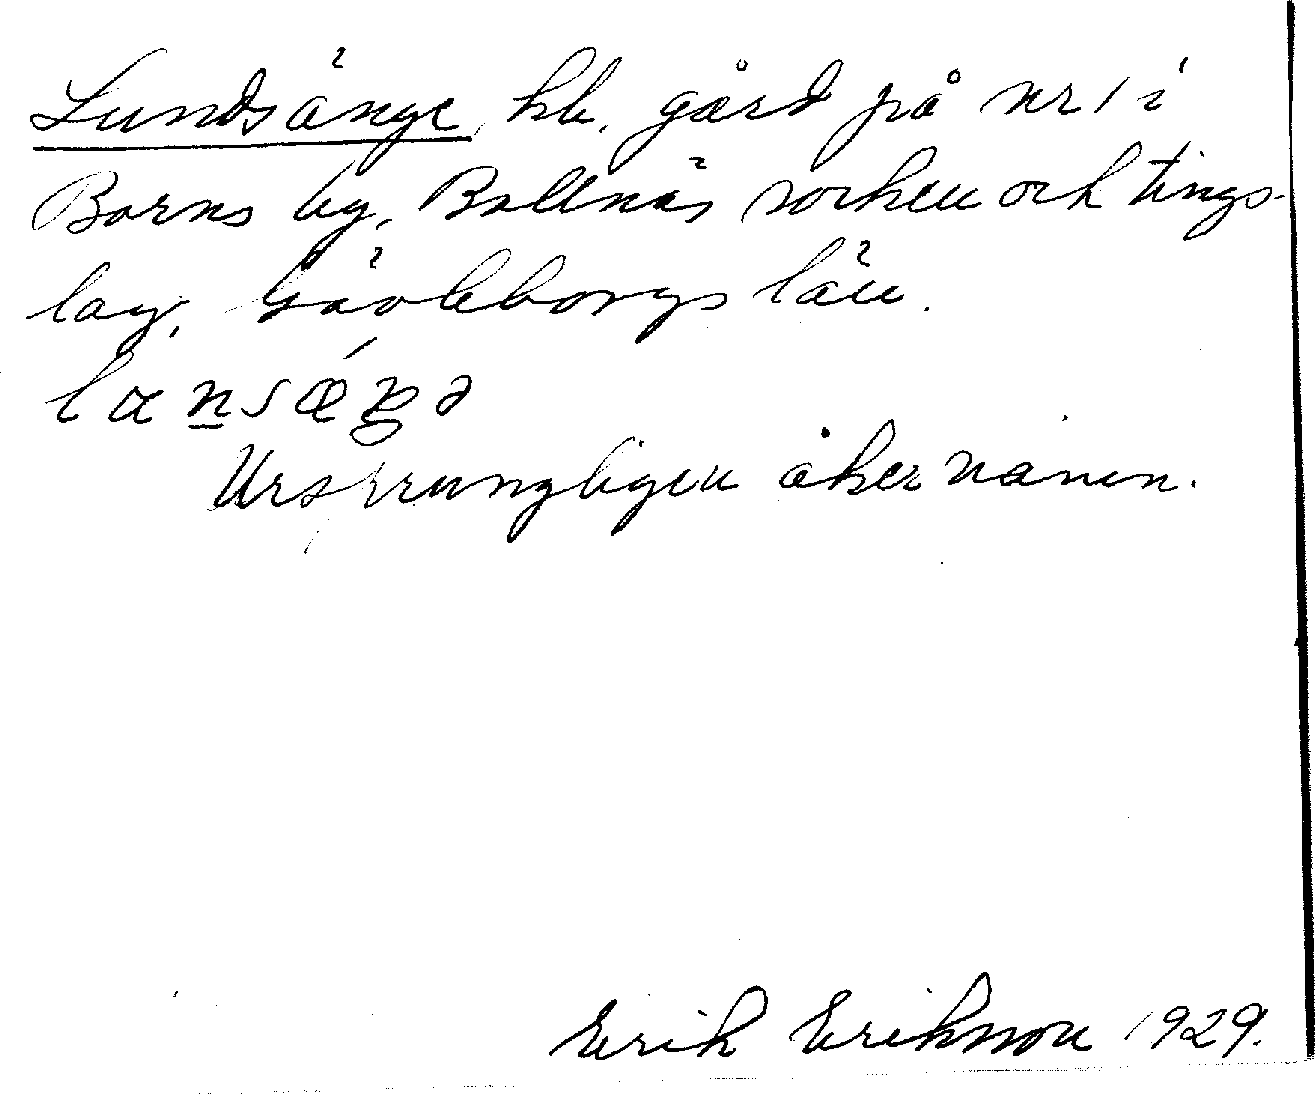 Lundsänge, hb. gård på nr 1 i
Borns by, Bollnäs socken och tings-
lag, Gävleborgs län.
Ursprungligen åkernamn.
Erik Erikson 1929.